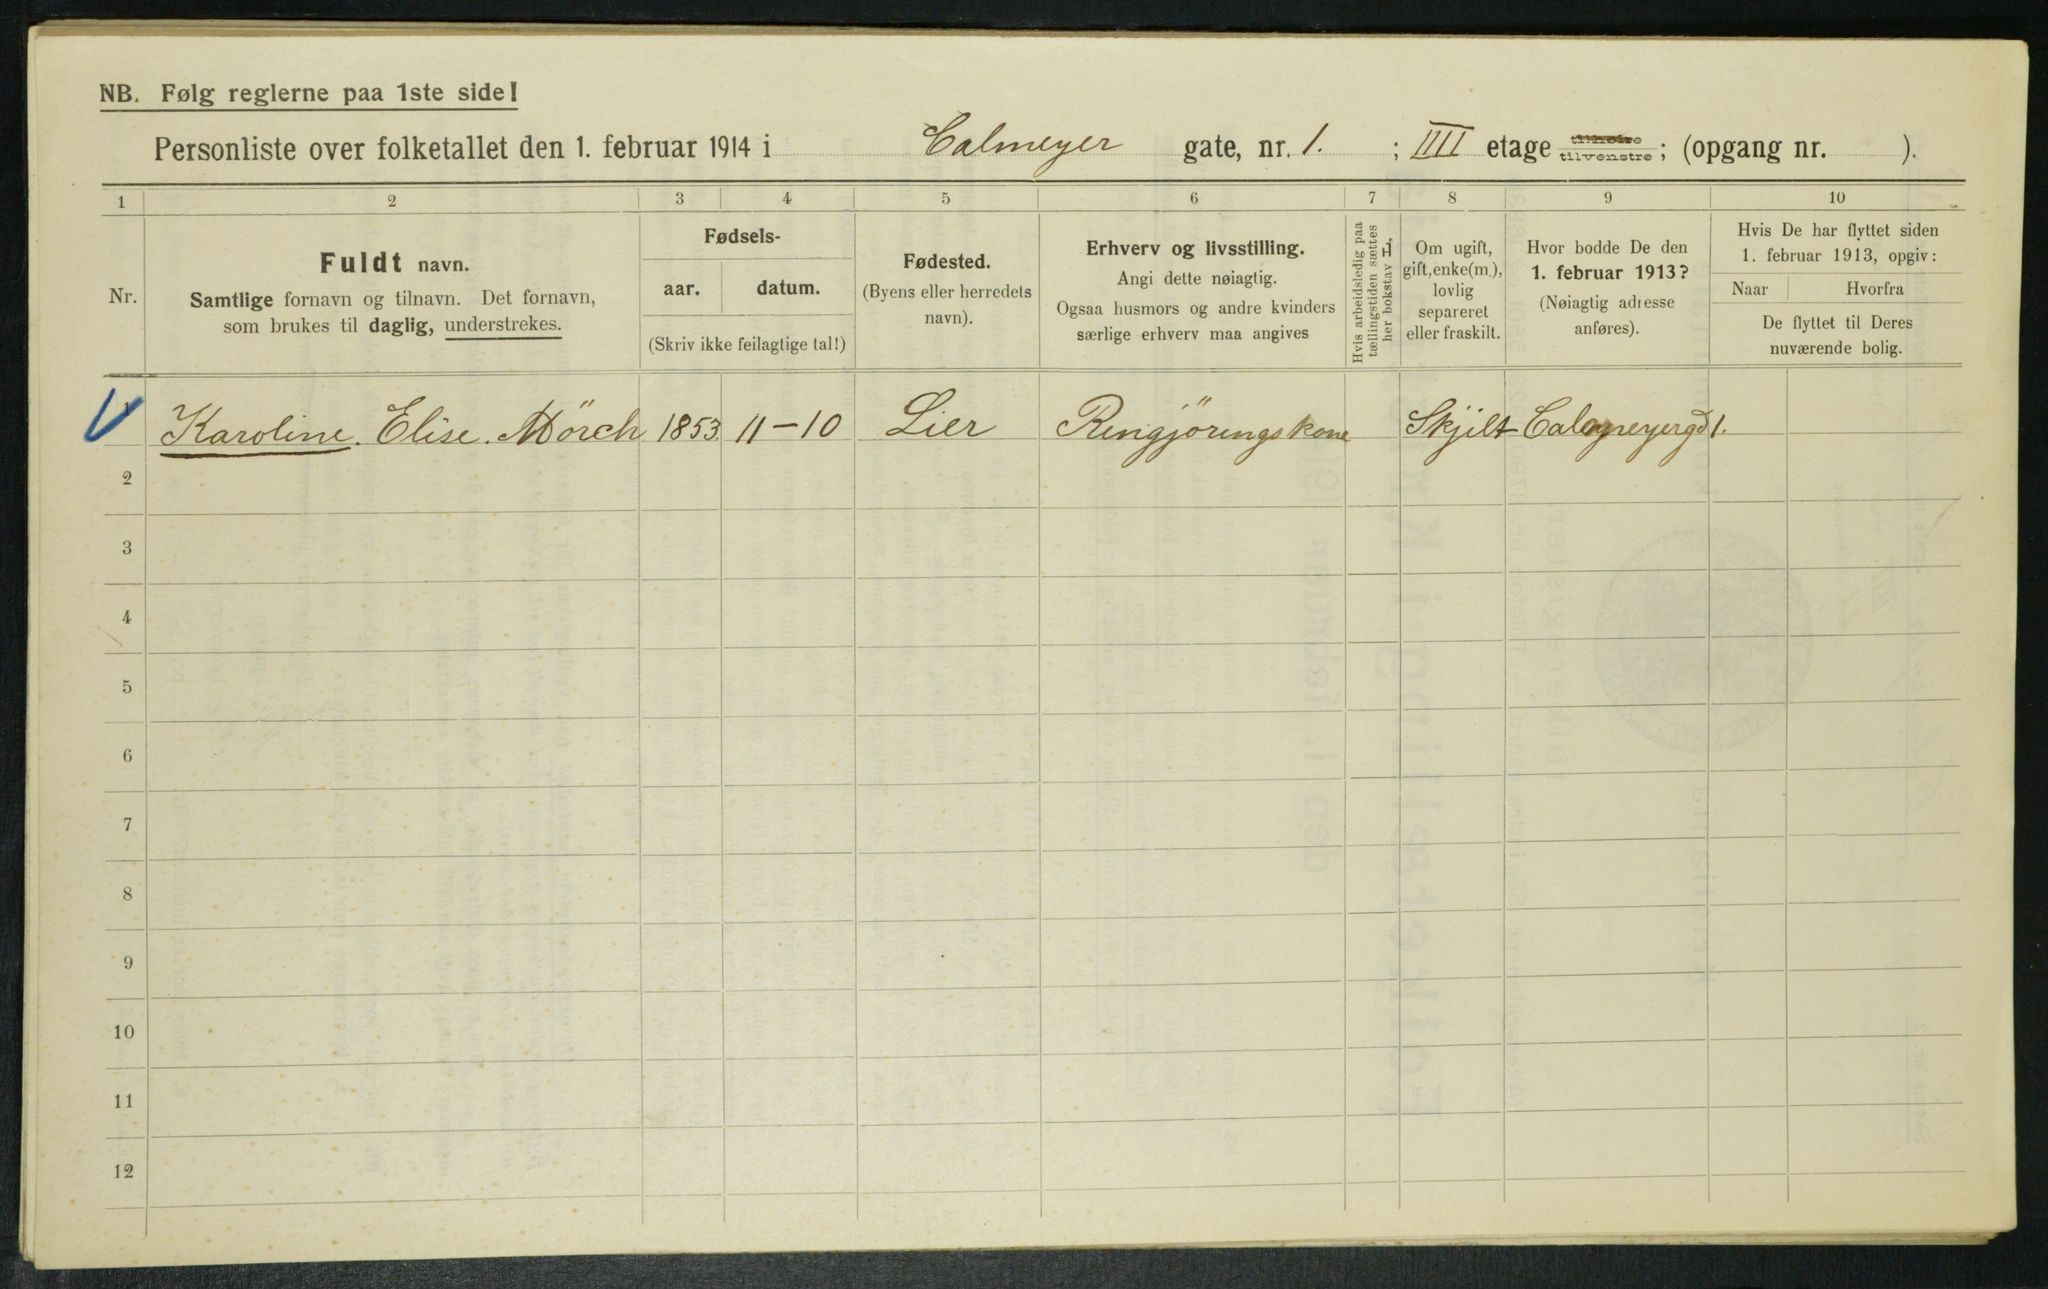 NB. Følg reglerne paa 1ste side!
Personliste over folketallet den 1. februar 1914 i Calmeyer gate, nr. 1. ; IIII etage tilhøire tilvenstre; (opgang nr. ).
1 2 3 4 5 6 7 8 9 10
Nr.
Fuldt navn.
Samtlige fornavn og tilnavn. Det fornavn,
som brukes til daglig, understrekes.
Fødsels-
aar. datum.
(Skriv ikke feilagtige tal!)
Fødested.
(Byens eller herredets
navn).
Erhverv og livsstilling.
Angi dette nøiagtig.
Ogsaa husmors og andre kvinders
særlige erhverv maa angives
Hvis arbeidsledig paa
tællingstiden sættes
her bokstav H.
Om ugift,
gift, enke(m.),
lovlig
separeret
eller fraskilt.
Hvor bodde De den
1. februar 1913?
(Nøiagtig adresse
anføres).
Hvis De har flyttet siden
1. februar 1913, opgiv:
Naar Hvorfra
De flyttet til Deres
nuværende bolig.
Karoline. Elise. Mörch 1853 11-10 Lier Rengjöringskone Skjilt Calmeyergd 1.
2
3
4
5
6
7
8
9
10
11
12